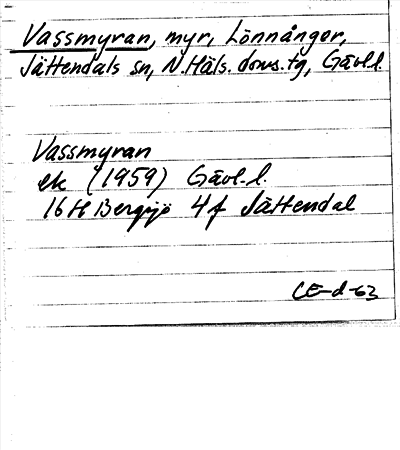 Vassmyran, myr, Lönnånger,
Jättendals sn, N.Häls. doms.tg, Gävl.l.
Vassmyran
ek (1959) Gävl.l.
16H Bergsjö 4f Jättendal
CE-d-63